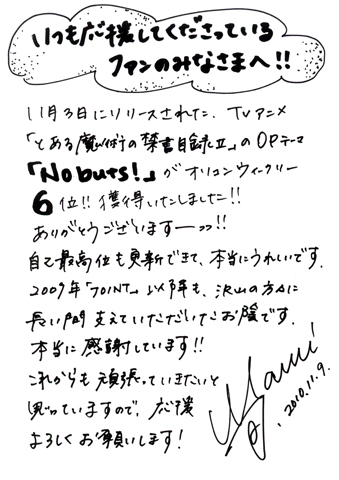 いつも応援してくださっている
ファンのみなさまへ!!
11月3日にリリースされた、TVアニメ
「とある魔術の禁書目録Ⅱ」のOPテーマ
「No buts!」がオリコンウィークリー
6位!!獲得いたしました!!
ありがとうございますーっっ!!
自己最高位も更新できて、本当にうれしいです。
2009年「JOINT」以降も、沢山の方々に
長い間支えていただいたお陰です。
本当に感謝しています!!
これからも頑張っていきたいと
思っていますので、応援
よろしくお願いします!
Mami
2010.11.9.